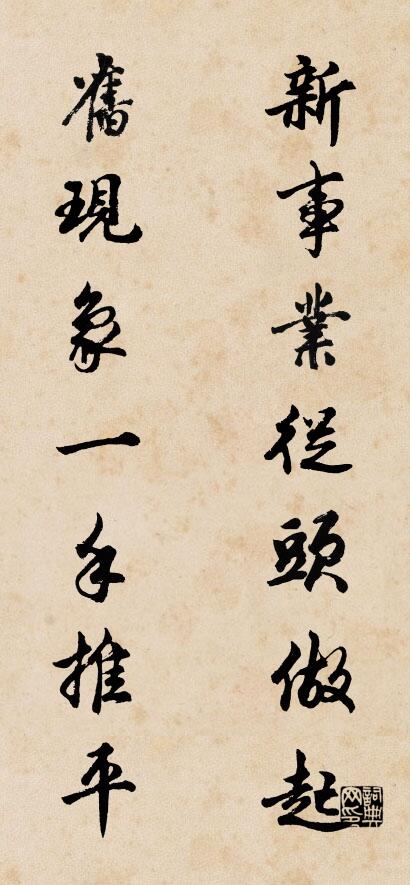 新事業從頭做起
舊現象一手推平
詞典网印